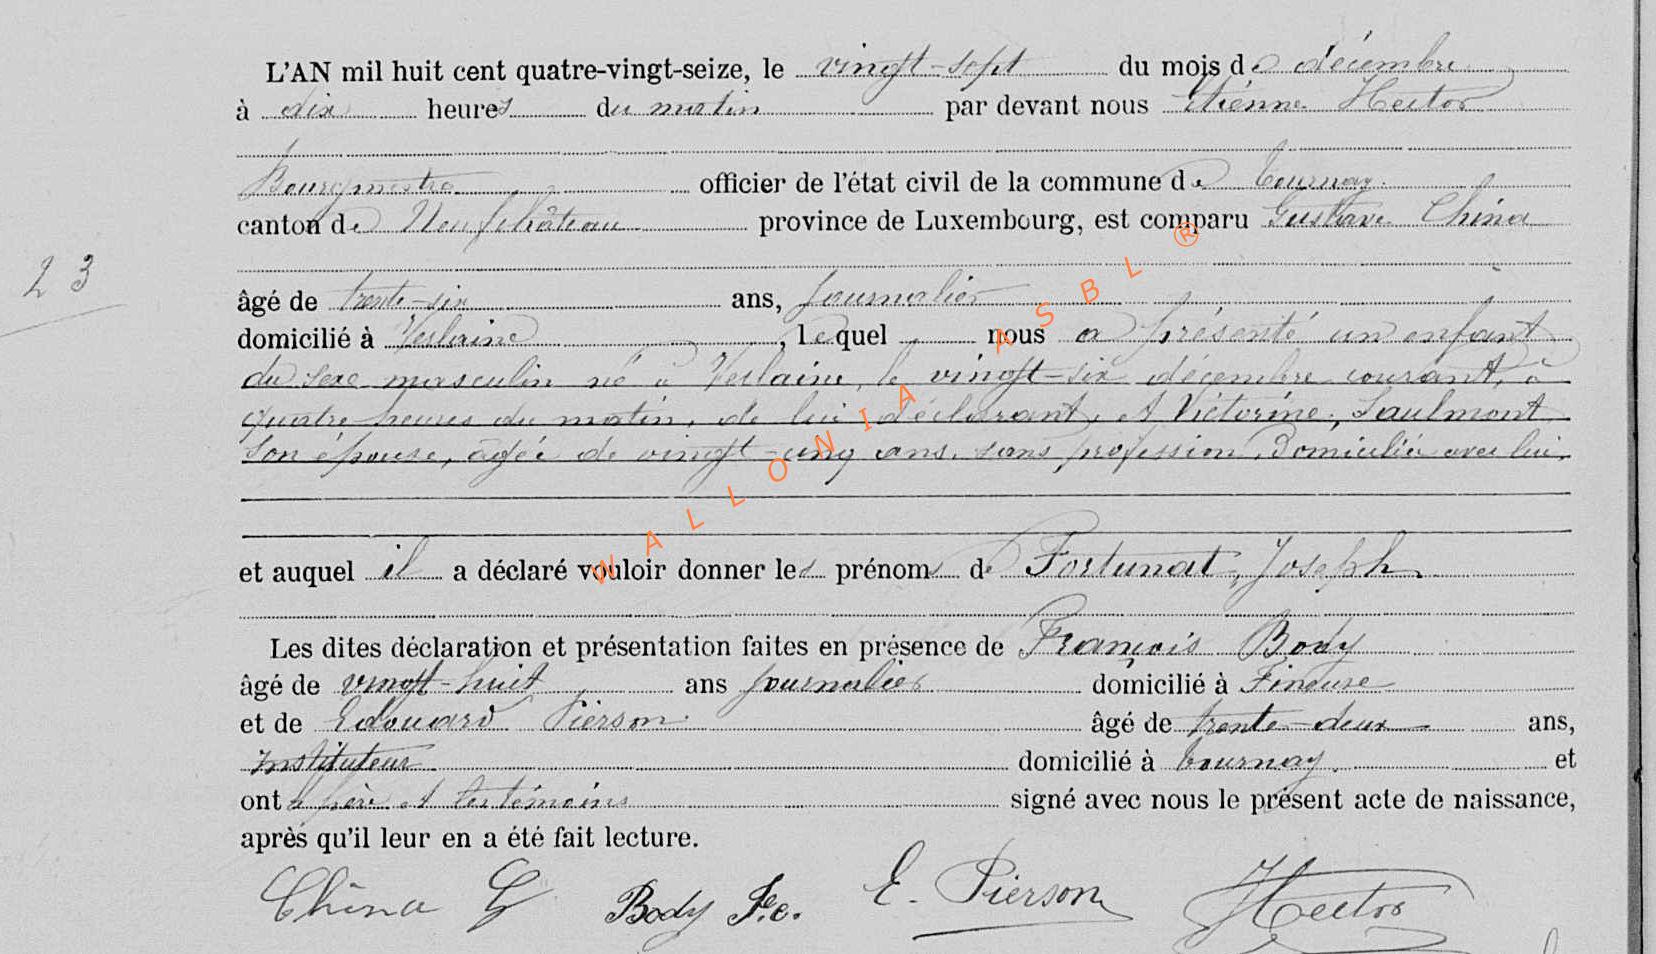 L'AN mil huit cent quatre-vingt-seize, le vingt-sept du mois de décembre
à dix heures du matin par devant nous Etienne Hector
Bourgmestre officier de l'état civil de la commune de Tournay
canton de Neufchâteau province de Luxembourg, est comparu Gustave China
23
âgé de trente-six ans, journalier
domicilié à Verlaine, lequel nous a présenté un enfant
du sexe masculin né à Verlaine, le vingt-six décembre courant, à
quatre heures du matin, de lui déclarant, et Victorine, Saulmont
son épouse, âgée de vingt-cinq ans, sans profession, Domiciliée avec lui.
et auquel il a déclaré vouloir donner les prénoms de Fortunat, Joseph
Les dites déclaration et présentation faites en présence de François Body
âgé de vingt-huit ans journalier domicilié à Fineuse
et de Edouard Pierson âgé de trente-deux ans,
Instituteur domicilié à Tournay. et
ont père et les témoins signé avec nous le présent acte de naissance,
après qu'il leur en a été fait lecture.
China G Body F.c. E. Pierson Hector
WALLONIA ASBL ®